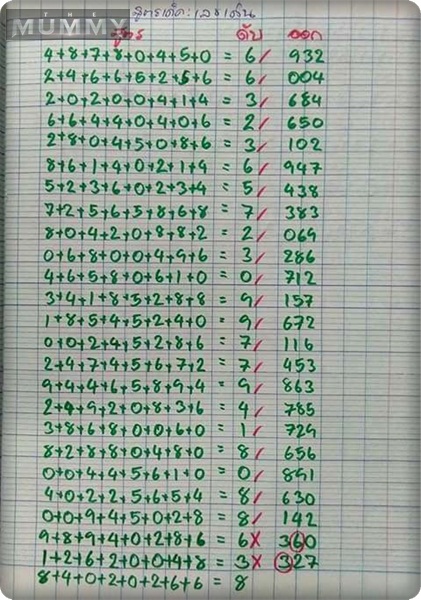 THE MUMMY
สูตรเด็ด:เลขเด่น
สูตร ดับ ออก
4+8+7+8+0+4+5+0 = 6/ 932
2+4+6+6+5+2+5+6 = 6/ 004
2+0+2+0+0+4+1+4 = 3/ 684
6+6+4+4+0+4+0+6 = 2/ 650
2+8+0+4+5+0+8+6 = 3/ 102
8+6+1+4+0+2+1+4 = 6/ 947
5+2+3+6+0+2+3+4 = 5/ 438
7+2+5+6+5+8+6+8 = 7/ 383
8+0+4+2+0+8+8+2 = 2/ 069
0+6+8+0+0+4+9+6 = 3/ 286
4+6+5+8+0+6+1+0 = 0/ 712
3+4+1+8+5+2+8+8 = 9/ 157
1+8+5+4+5+2+4+0 = 9/ 672
0+0+2+4+5+2+8+6 = 7/ 116
2+4+7+4+5+6+7+2 = 7/ 453
9+4+4+6+5+8+9+4 = 9/ 863
2+4+9+2+0+8+3+6 = 4/ 785
3+8+6+8+0+0+6+0 = 1/ 729
8+2+8+8+0+4+8+0 = 8/ 656
0+0+4+4+5+6+1+0 = 0/ 891
4+0+2+2+5+6+5+4 = 8/ 630
0+0+9+4+5+0+2+8 = 8/ 142
9+8+9+4+0+2+8+6 = 6X 360
1+2+6+2+0+0+4+8 = 3X 327
8+4+0+2+0+2+6+6 = 8